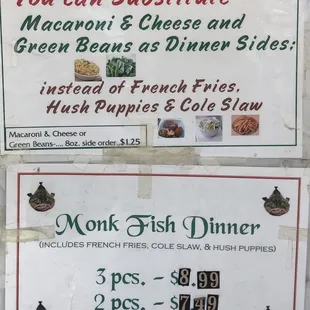 You Can Substitute
Macaroni & Cheese and
Green Beans as Dinner Sides:
instead of French Fries,
Hush Puppies & Cole Slaw
Macaroni & Cheese or
Green Beans-.... 8oz. side order $1.25
Monk Fish Dinner
(INCLUDES FRENCH FRIES, COLE SLAW, & HUSH PUPPIES)
3 pcs. - $8.99
2 pcs. - $7.49